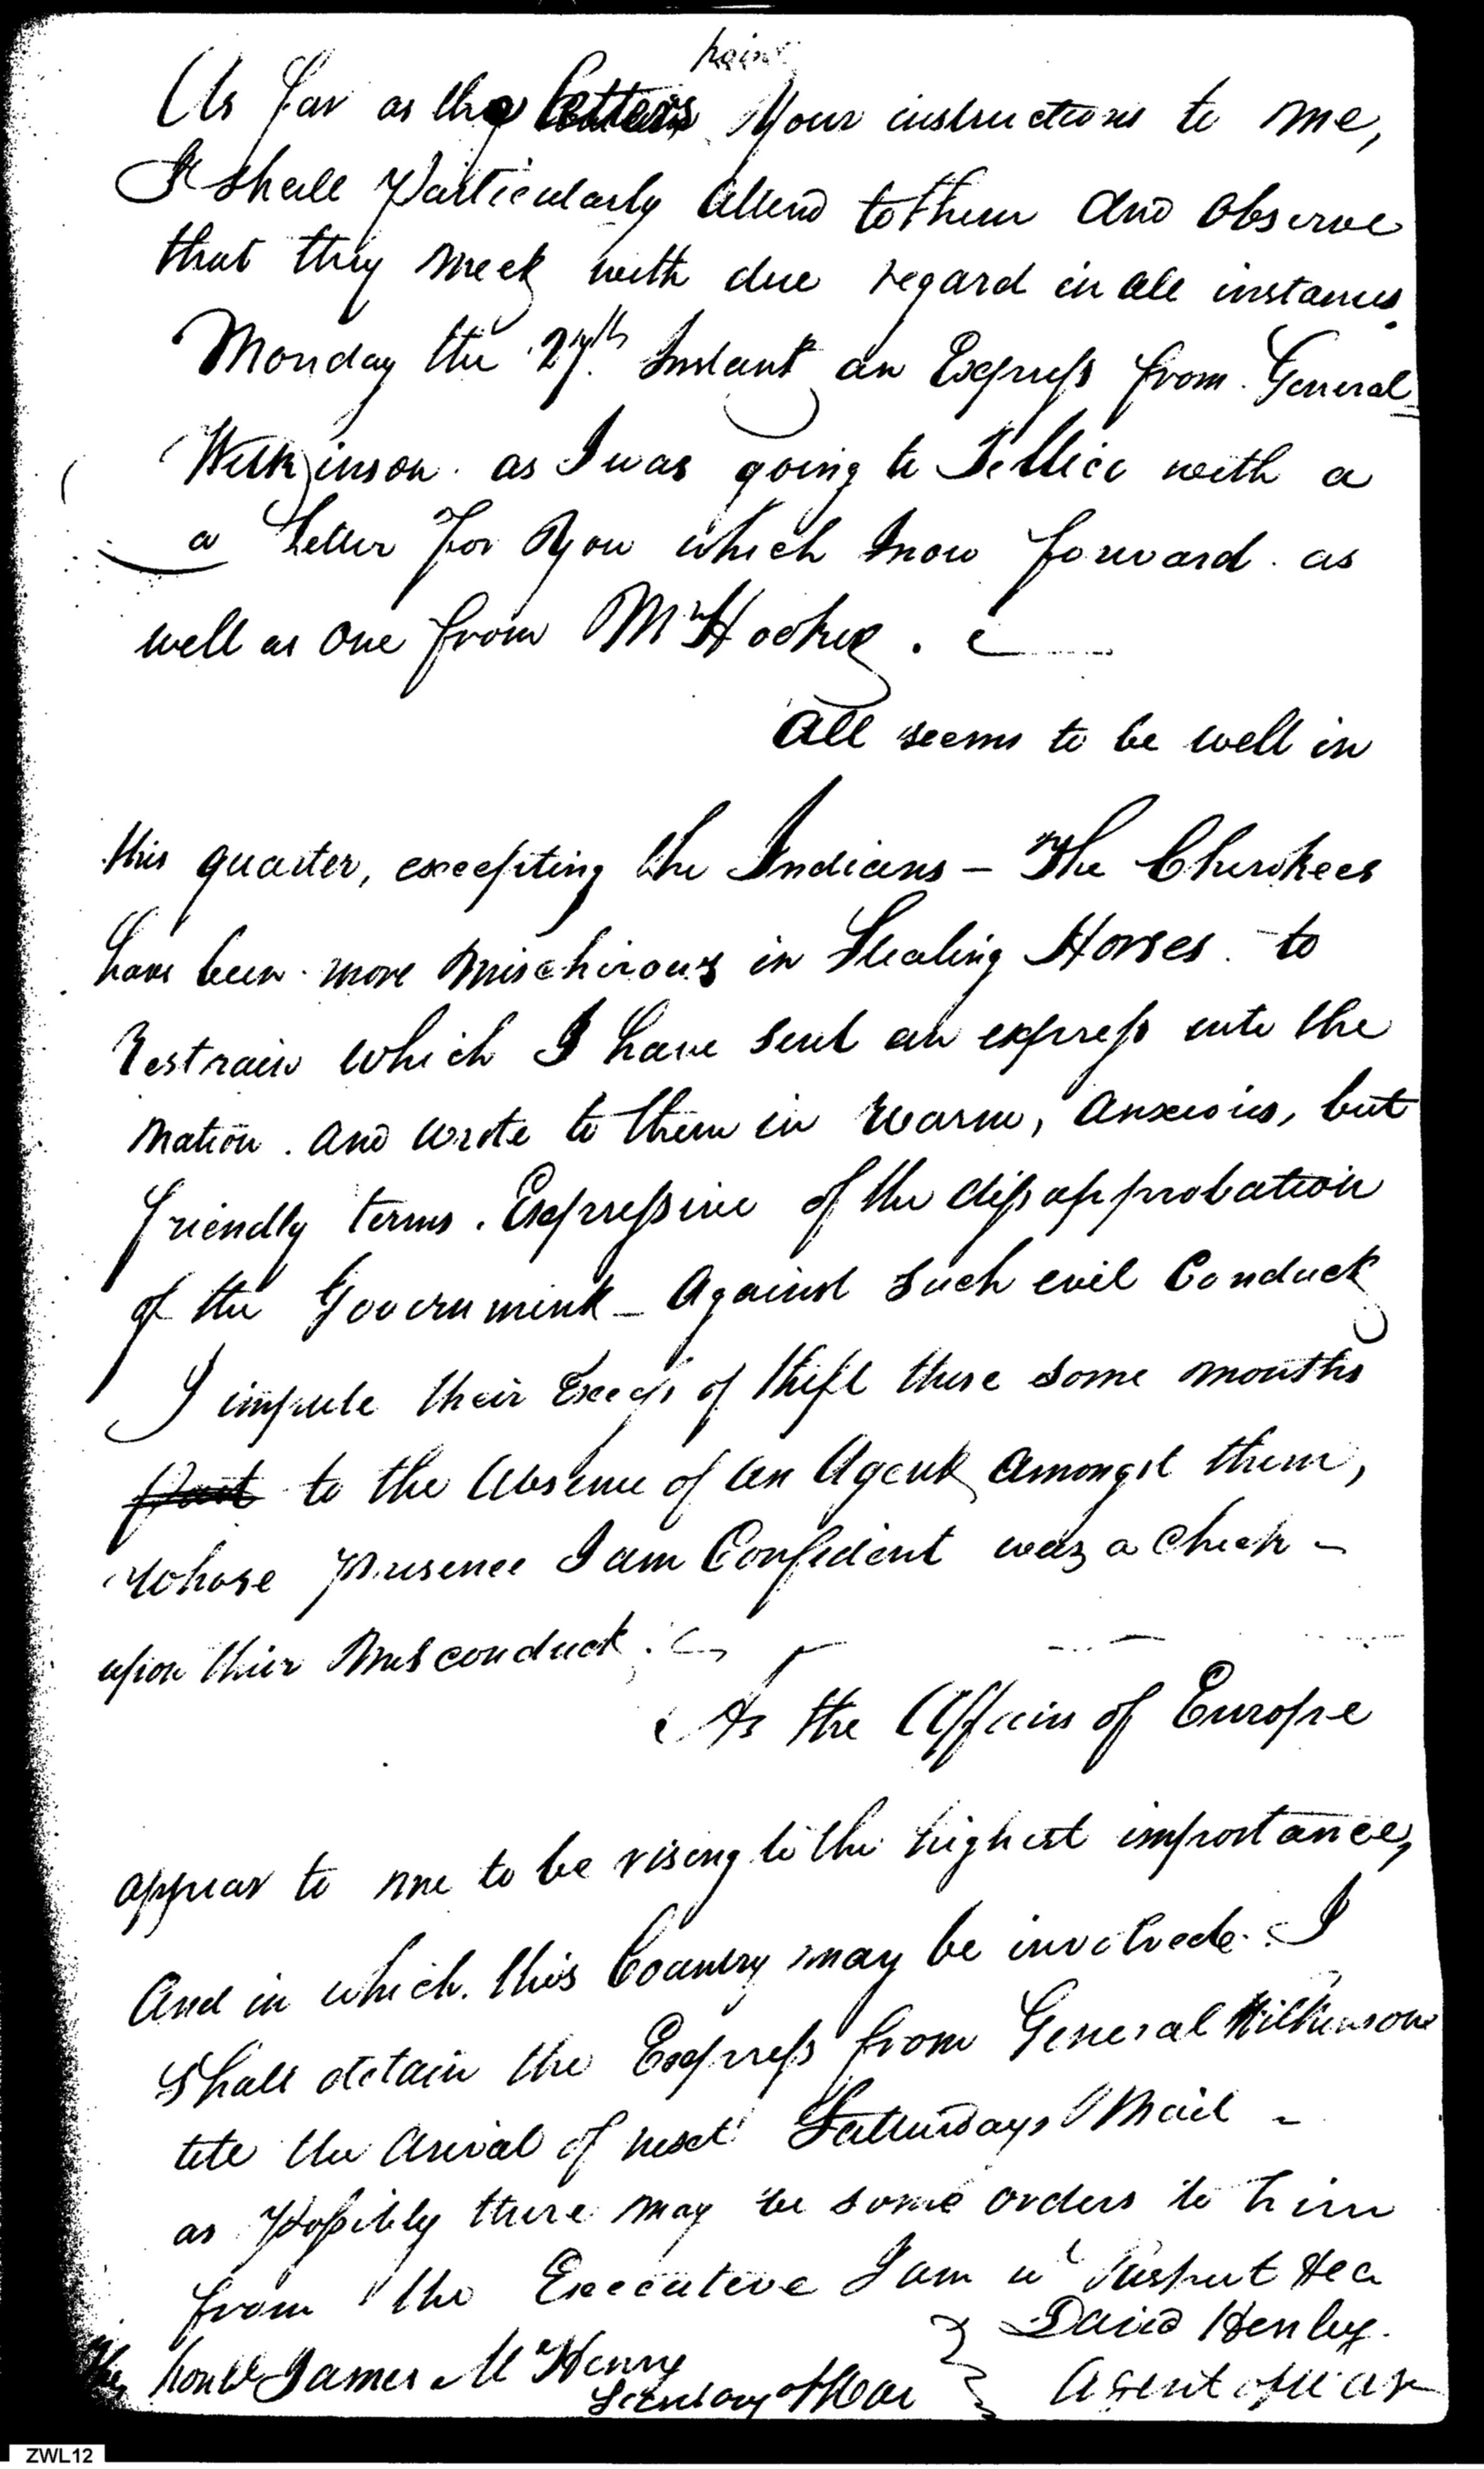 As far as they letters Your instructions to me,
I shall Particularly attend to them and observe
that they meet with due regard in all instances.
Monday the 27th Instant an Express from General
Wilkinson. as I was going to Tellico with a
a Letter for You which I now forward. as
well as one from Mr Hooker.
All seems to be well in
this quarter, excepting the Indians - The Cherokees
have been more mischivous in Stealing Horses. to
restrain which I have sent an express into the
nation. and wrote to them in warm, anxious, but
friendly terms. Expressive of the dissapprobation
of the Government - Against such evil Conduct
I impute their Excess of theft these some months
past to the Absence of an Agent amongst them,
whose presence I am Confident was a check -
upon their misconduct.
As the Affairs of Europe
appear to me to be rising to the highest importance,
And in which this Country may be involved. I
Shall detain the Express from General Wilkinson
till the arival of next Satturdays Mail -
as Possibly there may be some orders to him
from the Executive I am wt Respect &ca
David Henley.
The honble James McHenry
Secretary of War
Agent of War
ZWL12